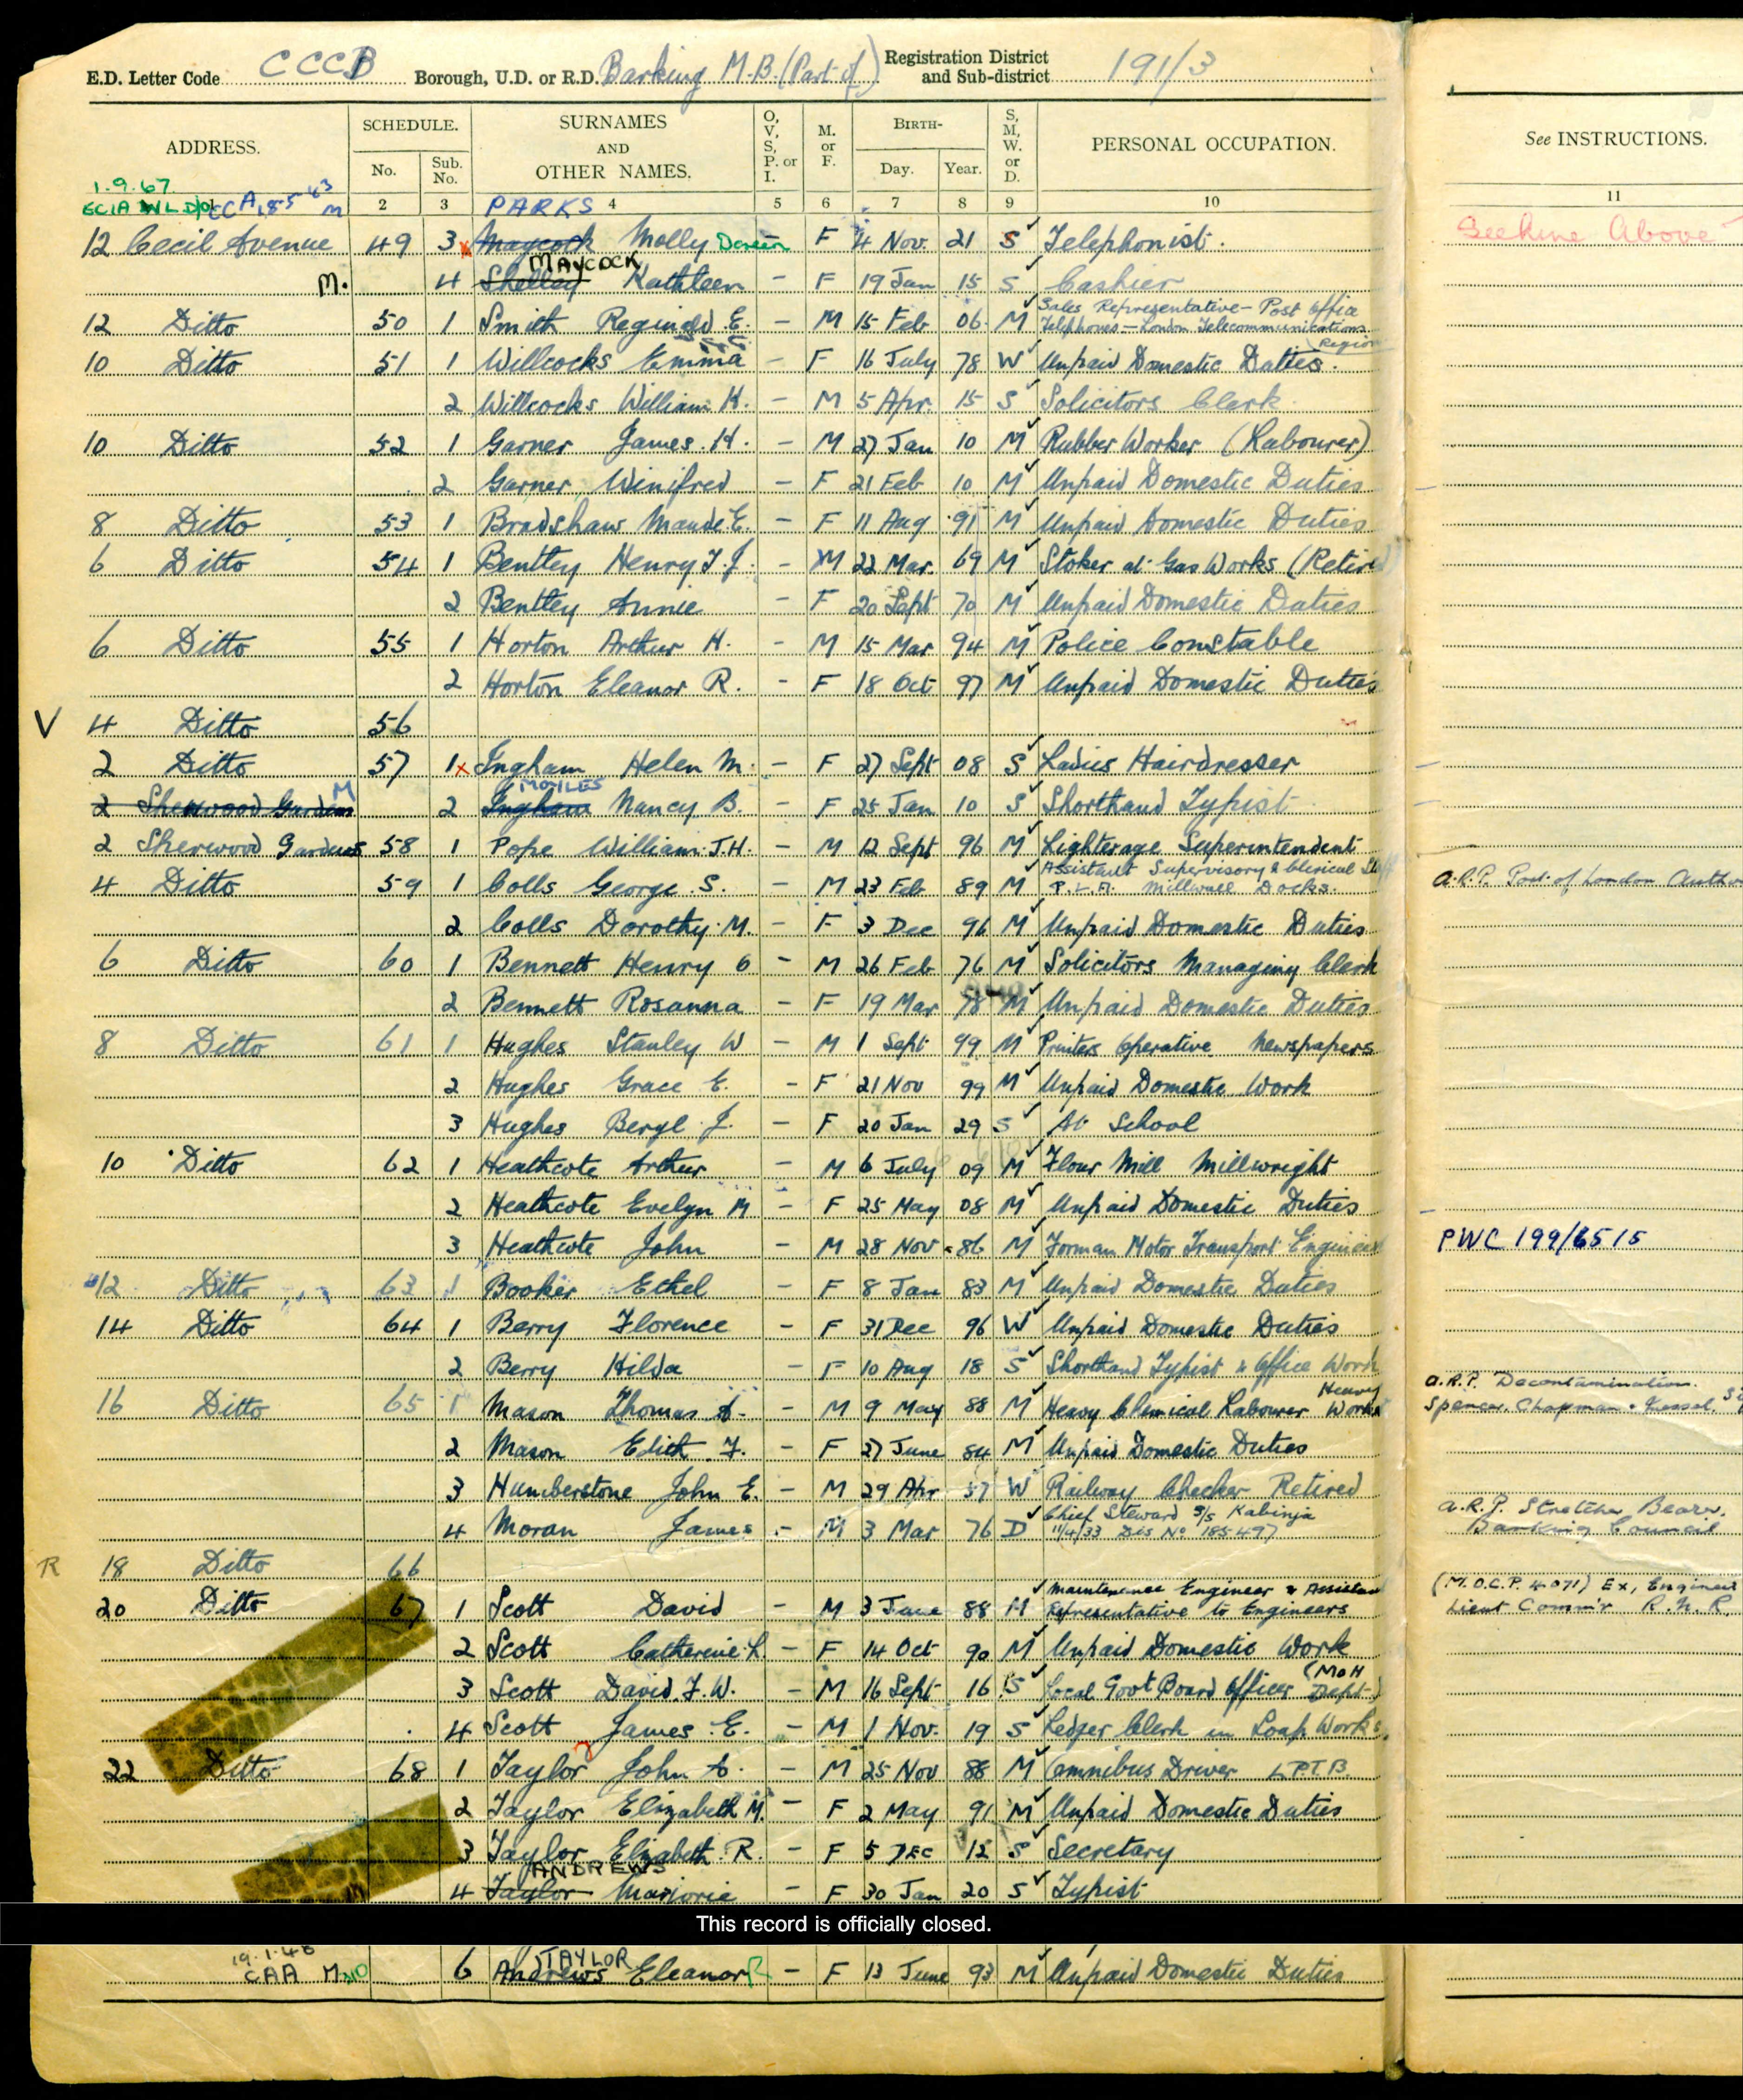 E.D. Letter Code CCCB Borough, U.D. or R.D. Barking M.B. (Part of) Registration District and Sub-district 191/3
ADDRESS. SCHEDULE. No. Sub. No. SURNAMES AND OTHER NAMES. O, V, S, P. or I. M. or F. BIRTH- Day. Year. S, M, W. or D. PERSONAL OCCUPATION. See INSTRUCTIONS.
1.9.67
2 3 4 5 6 7 8 9 10 11
PARKS
12 Cecil Avenue 49 3 x Maycock Molly Doreen F 4 Nov. 21 S Telephonist.
MAYCOCK
M. 4 Shelley Kathleen - F 19 Jan 15 S Cashier
12 Ditto 50 1 Smith Reginald E. - M 15 Feb 06 M Sales Representative - Post Office Telephones - London Telecommunications Region
10 Ditto 51 1 Willcocks Emma - F 16 July 78 W Unpaid Domestic Duties.
2 Willcocks William H. - M 5 Apr. 15 S Solicitors Clerk
10 Ditto 52 1 Garner James. H. - M 27 Jan 10 M Rubber Worker (Labourer)
2 Garner Winifred - F 21 Feb 10 M Unpaid Domestic Duties
8 Ditto 53 1 Bradshaw Maude E. - F 11 Aug 91 M Unpaid Domestic Duties
6 Ditto 54 1 Bentley Henry T. J. - M 22 Mar. 69 M Stoker at Gas Works (Retired)
2 Bentley Annie - F 20 Sept 70 M Unpaid Domestic Duties
6 Ditto 55 1 Horton Arthur H. - M 15 Mar 94 M Police Constable
2 Horton Eleanor R. - F 18 Oct 97 M Unpaid Domestic Duties
V 4 Ditto 56
2 Ditto 57 1 x Ingham Helen M. - F 27 Sept 08 S Ladies Hairdresser
MOYLES
2 Sherwood Gardens M 2 Ingham Nancy B. - F 25 Jan 10 S Shorthand Typist
2 Sherwood Gardens 58 1 Pope William J.H. - M 12 Sept 96 M Lighterage Superintendent
4 Ditto 59 1 Colls George S. - M 23 Feb 89 M Assistant Supervisory & Clerical Staff P.L.A. Millwall Docks. A.R.P. Port of London Autho
2 Colls Dorothy M. - F 3 Dec 96 M Unpaid Domestic Duties
6 Ditto 60 1 Bennett Henry O - M 26 Feb 76 M Solicitors Managing Clerk
2 Bennett Rosanna - F 19 Mar 78 M Unpaid Domestic Duties
8 Ditto 61 1 Hughes Stanley W - M 1 Sept 99 M Printers Operative Newspapers
2 Hughes Grace E. - F 21 Nov 99 M Unpaid Domestic Work
3 Hughes Beryl J. - F 20 Jan 29 S At School
10 Ditto 62 1 Heathcote Arthur - M 6 July 09 M Flour Mill Millwright
2 Heathcote Evelyn M - F 25 May 08 M Unpaid Domestic Duties
3 Heathcote John - M 28 Nov 86 M Forman Motor Transport Engineer PWC 199/6515
12 Ditto 63 1 Booker Ethel - F 8 Jan 83 M Unpaid Domestic Duties
14 Ditto 64 1 Berry Florence - F 31 Dec 96 W Unpaid Domestic Duties
2 Berry Hilda - F 10 Aug 18 S Shorthand Typist & Office Work
16 Ditto 65 1 Mason Thomas A. - M 9 May 88 M Heavy Chemical Labourer Heavy Works A.R.P. Decontamination. Spencer. Chapman & Messel.
2 Mason Edith. F. - F 27 June 84 M Unpaid Domestic Duties
3 Humberstone John E. - M 29 Apr 57 W Railway Checker Retired
4 Moran James - M 3 Mar 76 D Chief Steward S/S Kabinja 11/4/33 Dis No 185497 A.R.P. Stretcher Bearer. Barking Council
R 18 Ditto 66
20 Ditto 67 1 Scott David - M 3 June 88 M Maintenance Engineer & Assistant Representative to Engineers (M.O.C.P. 4071) Ex, Engineer Lieut Comm'r R.N.R.
2 Scott Catherine L - F 14 Oct 90 M Unpaid Domestic Work
3 Scott David. F. W. - M 16 Sept 16 S Local Govt Board Officer (MOH Dept.)
4 Scott James E. - M 1 Nov. 19 S Ledger Clerk in Soap Works.
22 Ditto 68 1 Taylor John A. - M 25 Nov 88 M Omnibus Driver L.P.T.B.
2 Taylor Elizabeth M. - F 2 May 91 M Unpaid Domestic Duties
3 Taylor Elizabeth R. - F 5 Dec 12 S Secretary
ANDREWS
4 Taylor Marjorie - F 30 Jan 20 S Typist
This record is officially closed.
19.1.48
TAYLOR
CAA M 6 Andrews Eleanor R - F 13 June 93 M Unpaid Domestic Duties